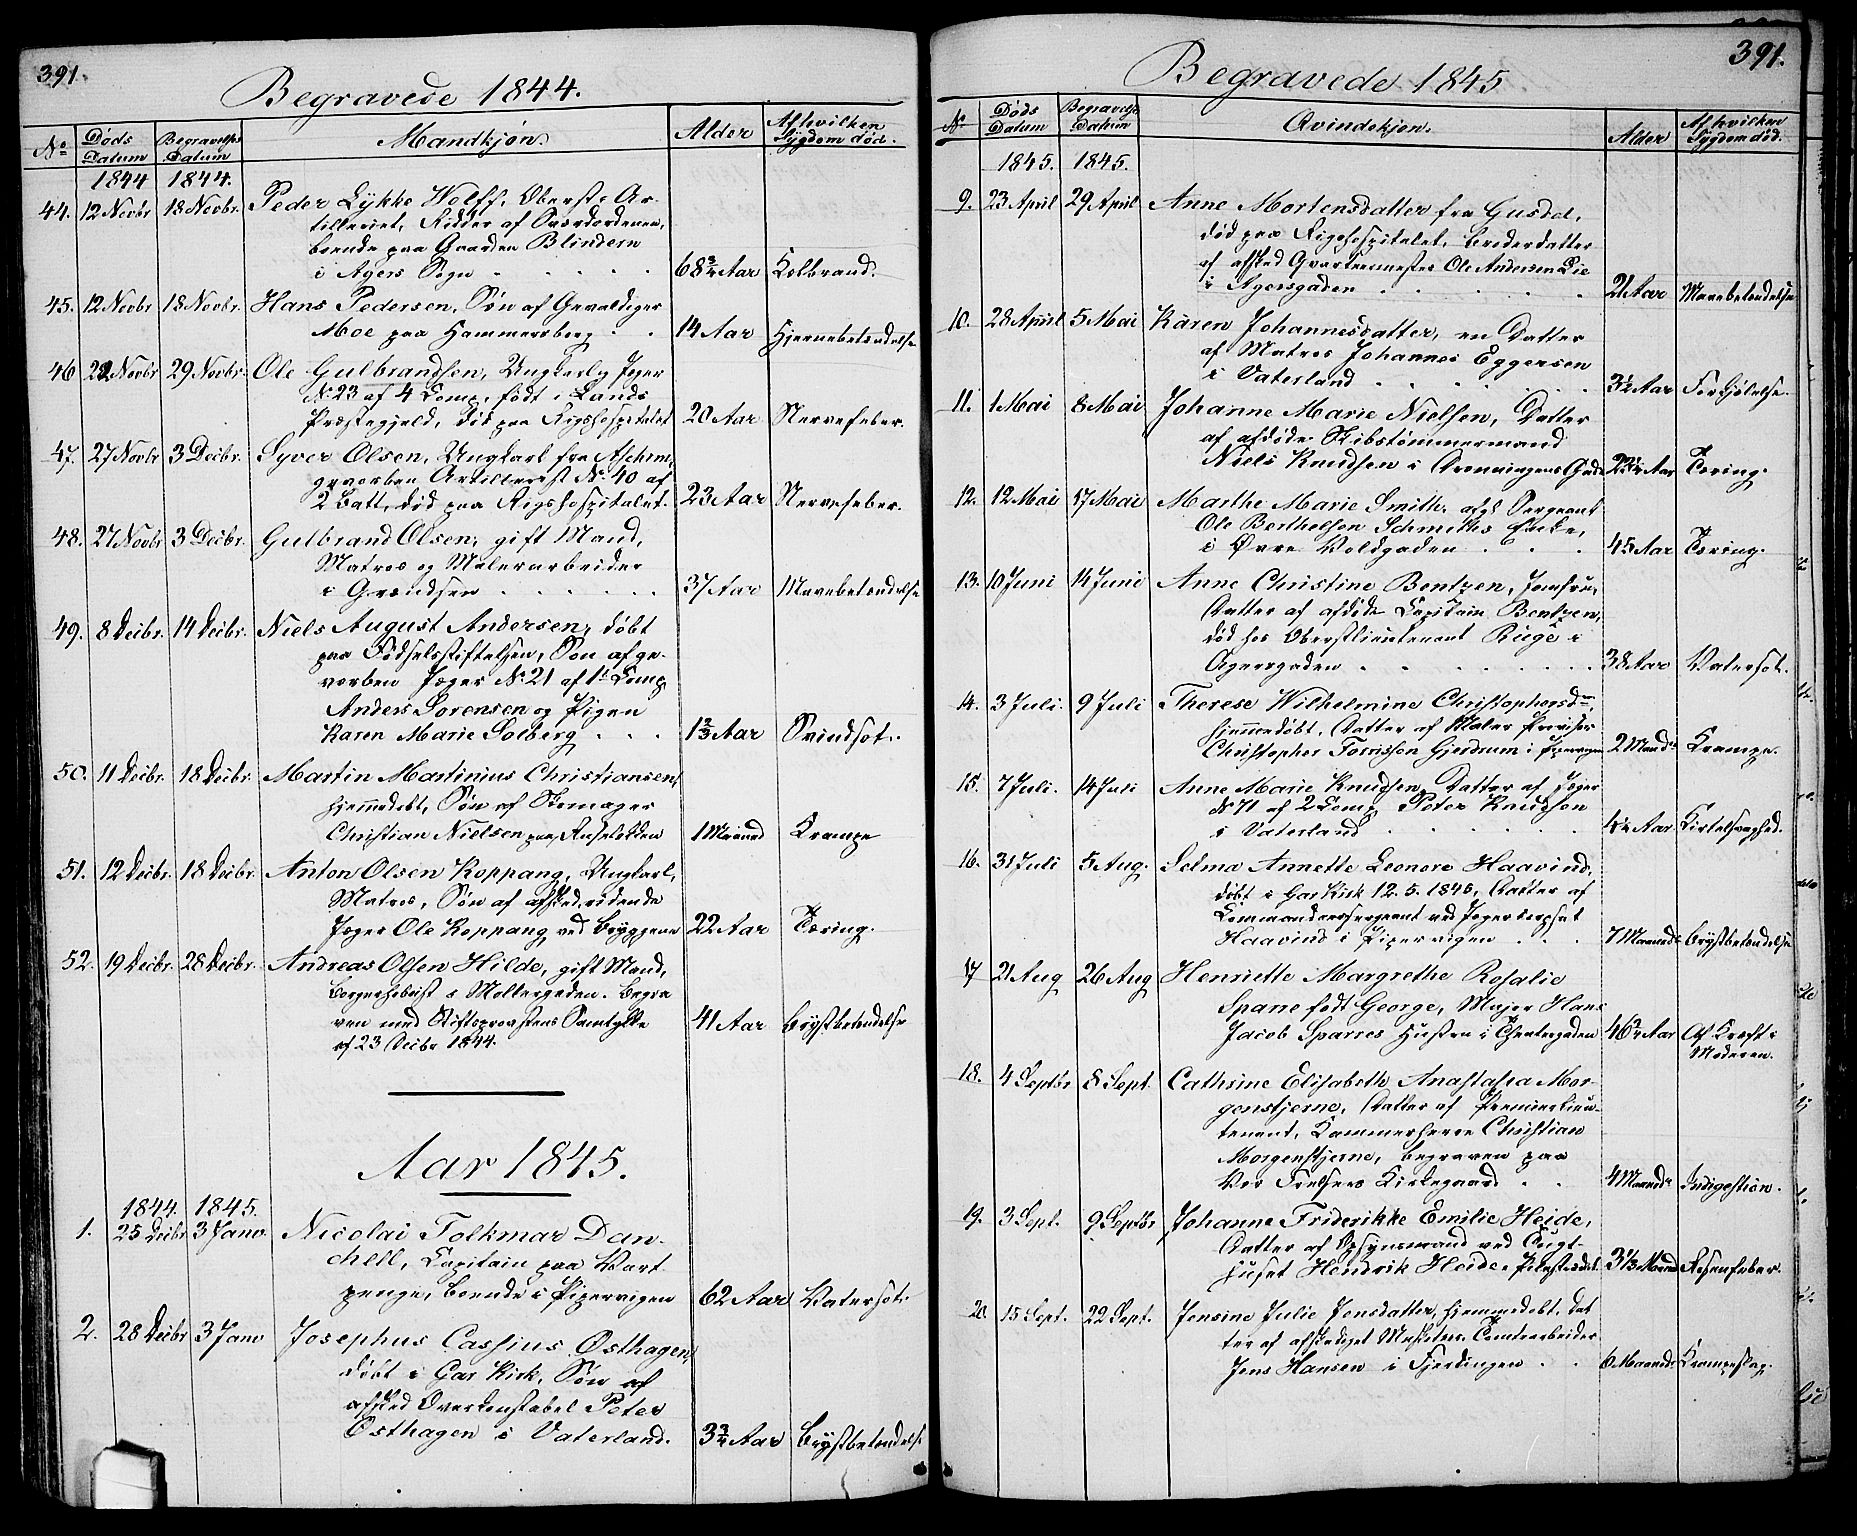 391.
Begravede 1844.
No
Døds Datum
Begravelses Datum
Mandkjøn.
Alder
Af hvilken Sygdom død.
1844 1844.
44. 12 Novbr 18 Novbr. Peder Lykke Wolff, Oberst i Ar-
tilleriet, Ridder af Sværdordenen,
boende paa Gaarden Blindern
i Agers Sogn 68 3/4 Aar Kolbrand.
45. 12 Novbr 18 Novbr. Hans Pedersen, Søn af Gevaldiger
Moe paa Hammersborg 14 Aar Hjernebetændelse
46 22 Novbr 29 Novbr. Ole Gulbrandsen, Ungkarl, Jæger
No 23 af 4 Comp. født i Lands
Præstegjeld, død paa Rigshospitalet 20 Aar Nervefeber.
47. 27 Novbr 3 Decbr. Syver Olsen, Ungkarl fra Aschim,
gevorben Artillerist No 40 af
2 Batt., død paa Rigshospitalet. 23 Aar Nervefeber.
48. 27 Novbr 3 Decbr. Gulbrand Olsen, gift Mand,
Matros og Malerarbeider
i Grændsen 37 Aar Mavebetændelse
49. 8 Decbr. 14 Decbr. Niels August Andersen, døbt
paa Fødselsstiftelsen, Søn af ge-
vorben Jæger No 21 af 1t Comp
Anders Sorensen og Pigen
Karen Marie Solberg 1 2/3 Aar Svindsot.
50. 11 Decbr. 18 Decbr. Martin Martinius Christiansen,
hjemmedøbt, Søn af Skomager
Christian Nielsen paa Ruseløkken 1 Maaned Krampe
51. 12 Decbr. 18 Decbr. Anton Olsen Koppang, Ungkarl,
Matros, Søn af afsked. ridende
Jæger Ole Koppang ved Bryggene 22 Aar Tæring.
52. 19 Decbr. 28 Decbr. Andreas Olsen Hilde, gift Mand,
i Møllergaden. Begra
ven med Stiftsprovstens Samtykke
af 23 Decbr 1844. 41 Aar Brystbetændelse
Aar 1845.
1844. 1845.
1. 25 Decbr 3 Janv. Nicolai Folkmar Dan-
chell, Capitain paa Vart
penge, boende i Pipervigen 62 Aar Vatersot.
2. 28 Decbr 3 Janv Josephus Cassius Østhagen,
døbt i Gar Kirk, Søn af
afsked Overkonstabel Peter
Østhagen i Vaterland. 3 3/4 Aar Brystbetændelse
391.
Begravede 1845
No
Døds Datum
Begravelse Datum
Qvindekjøn.
Alder
Af hvilken Sygdom død.
1845. 1845.
9. 23 April 29 April Anne Mortensdatter fra Gusdal,
død paa Rigshospitalet, Broderdatter
af afsked Qvarteermester Ole Andersen Lie
i Agersgaden 21 Aar Mavebetændelse
10. 28 April 5 Mai Karen Johannesdatter, en Datter
af Matros Johannes Eggersen
i Vaterland 3 1/2 Aar Forkjølelse.
11. 1 Mai 8 Mai Johanne Marie Nielsen, Datter
af afdøde Skibstømmermand
Niels Knudsen i Dronningens Gade 22 1/2 Aar Tæring.
12. 12 Mai 17 Mai Marthe Marie Smith, afgl Sergeant
Ole Berthelsen Schmiths Enke,
i Øvre Voldgaden 45 Aar Tæring.
13. 10 Juni 14 Juni Anne Christine Bentzen, Jomfru,
Datter af afdøde Capitain Bentzen,
død hos Oberstlieutenant Riege i
Agersgaden 38 Aar Vatersot.
14. 3 Juli. 9 Juli Therese Wilhelmine Christophersdr,
hjemmedøbt, Datter af Maler
Christopher Torrissen Gjerdrum i Pipervigen 2 Maaner Krampe.
15. 7 Juli. 14 Juli Anne Marie Knudsen, Datter af Jæger
No 71 af 2 Comp. Peter Knudsen
i Vaterland Aar Kirtelsvaghed.
16. 31 Juli 5 Aug. Selma Annette Leonore Haavind,
døbt i Gar Kirk 12. 5. 1845, Datter af
Commandeersergeant ved Jægercorpset
Haavind i Pipervigen 7 Maaneder Brystbetændelse
17 21 Aug 26 Aug Henriette Margrethe Rosalie
Sparre født George, Major Hans
Jacob Sparres Hustru i Theatergaden 46 3/4 Aar Af Kræft i
Moderen.
18. 4 Septbr 8 Sept. Cathrine Elisabeth Anastasia Mor-
genstjerne, Datter af Premierlieu-
tenant, Kammerherre Christian
Morgenstjerne, begraven paa
Vor Frelsers Kirkegaard 4 Maaneder Indigestion.
19. 3 Sept. 9 Septbr Johanne Friderikke Emilie Heide,
Datter af Opsynsmand ved Tugt-
huset Hendrik Heide, Pilestrædet. 3 1/3 Maaned Rosenfeber.
20. 15 Sept. 22 Sept. Jensine Julie Jensdatter, hjemmedøbt. Dat
ter af afskediget Musketeer, Tomtearbeider
Jens Hansen i Fjerdingen 6 Maaneder Krampeslag.